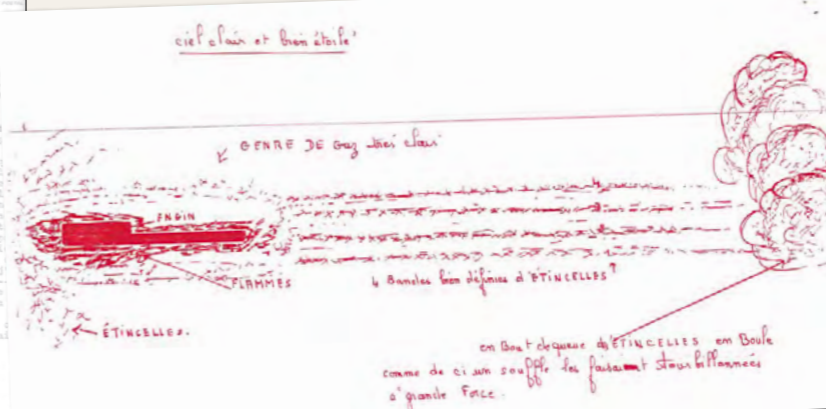 ciel clair et bien étoilé
GENRE DE Gaz très clair
ENGIN
FLAMMES
4 Bandes bien définies d'ÉTINCELLES
ÉTINCELLES.
en Bout de queue des ÉTINCELLES en Boule
comme de ci un souffle les faisaient tourbillonnées
à grande Force.